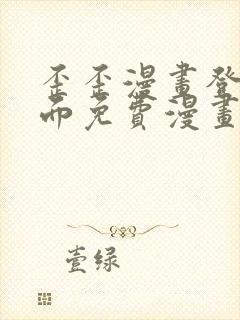 歪歪漫畫登
而免費漫畫
壹绿